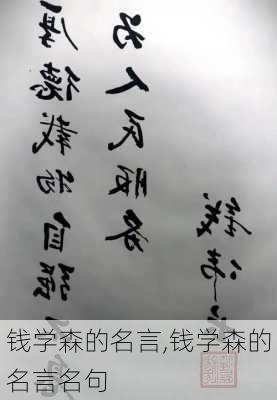 厚德载物自强
为人民服务
钱学森的名言,钱学森的
名言名句